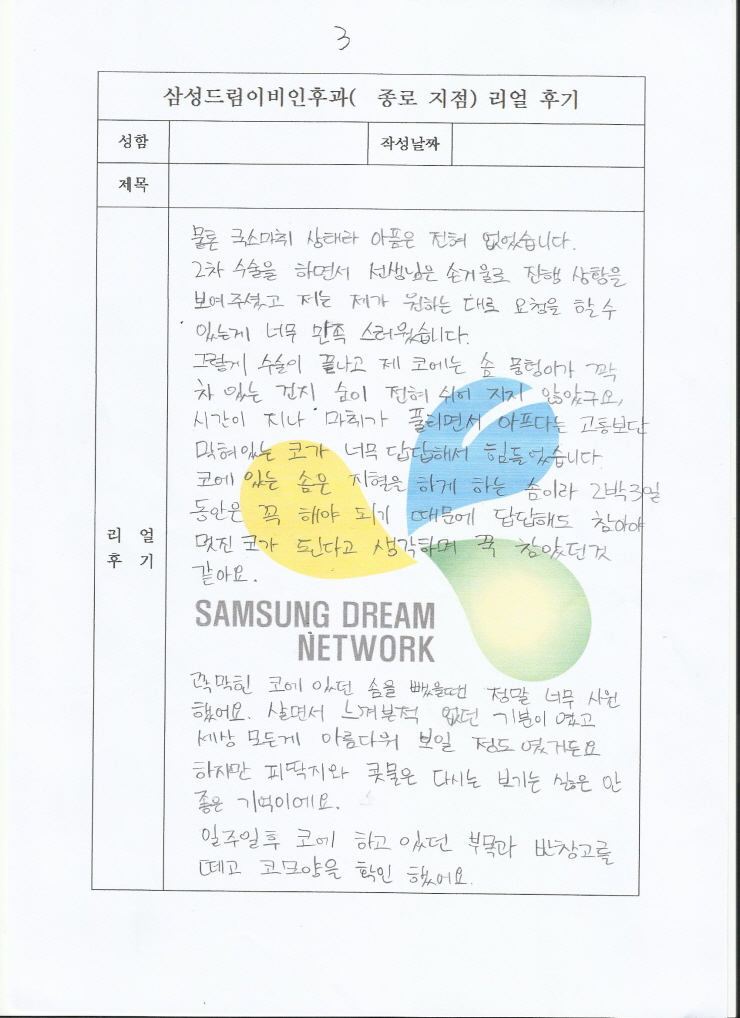 3
삼성드림이비인후과( 종로 지점) 리얼 후기
성함
작성날짜
제목
리 얼
후 기
물론 국소마취 상태라 아픔은 전혀 없었습니다.
2차 수술을 하면서 선생님은 손거울로 진행 상황을
보여주셨고 저는 제가 원하는 대로 요청을 할 수
있는게 너무 만족 스러웠습니다.
그렇게 수술이 끝나고 제 코에는 솜 뭉텅이가 꽉
차 있는 건지 숨이 전혀 쉬어 지지 않았구요,
시간이 지나 마취가 풀리면서 아프다는 고통보단
막혀있는 코가 너무 답답해서 힘들었습니다.
코에 있는 솜은 지혈을 하게 하는 솜이라 2박3일
동안은 꼭 해야 되기 때문에 답답해도 참아야
멋진 코가 된다고 생각하며 꾹 참았던것
같아요.
SAMSUNG DREAM
NETWORK
꽉막힌 코에 있던 솜을 뺐을땐 정말 너무 시원
했어요. 살면서 느껴본적 없던 기분이 였고
세상 모든게 아름다워 보일 정도 였거든요
하지만 피딱지와 콧물은 다시는 보기는 싫은 안
좋은 기억이에요.
일주일후 코에 하고 있던 부목과 반창고를
떼고 코모양을 확인 했어요.